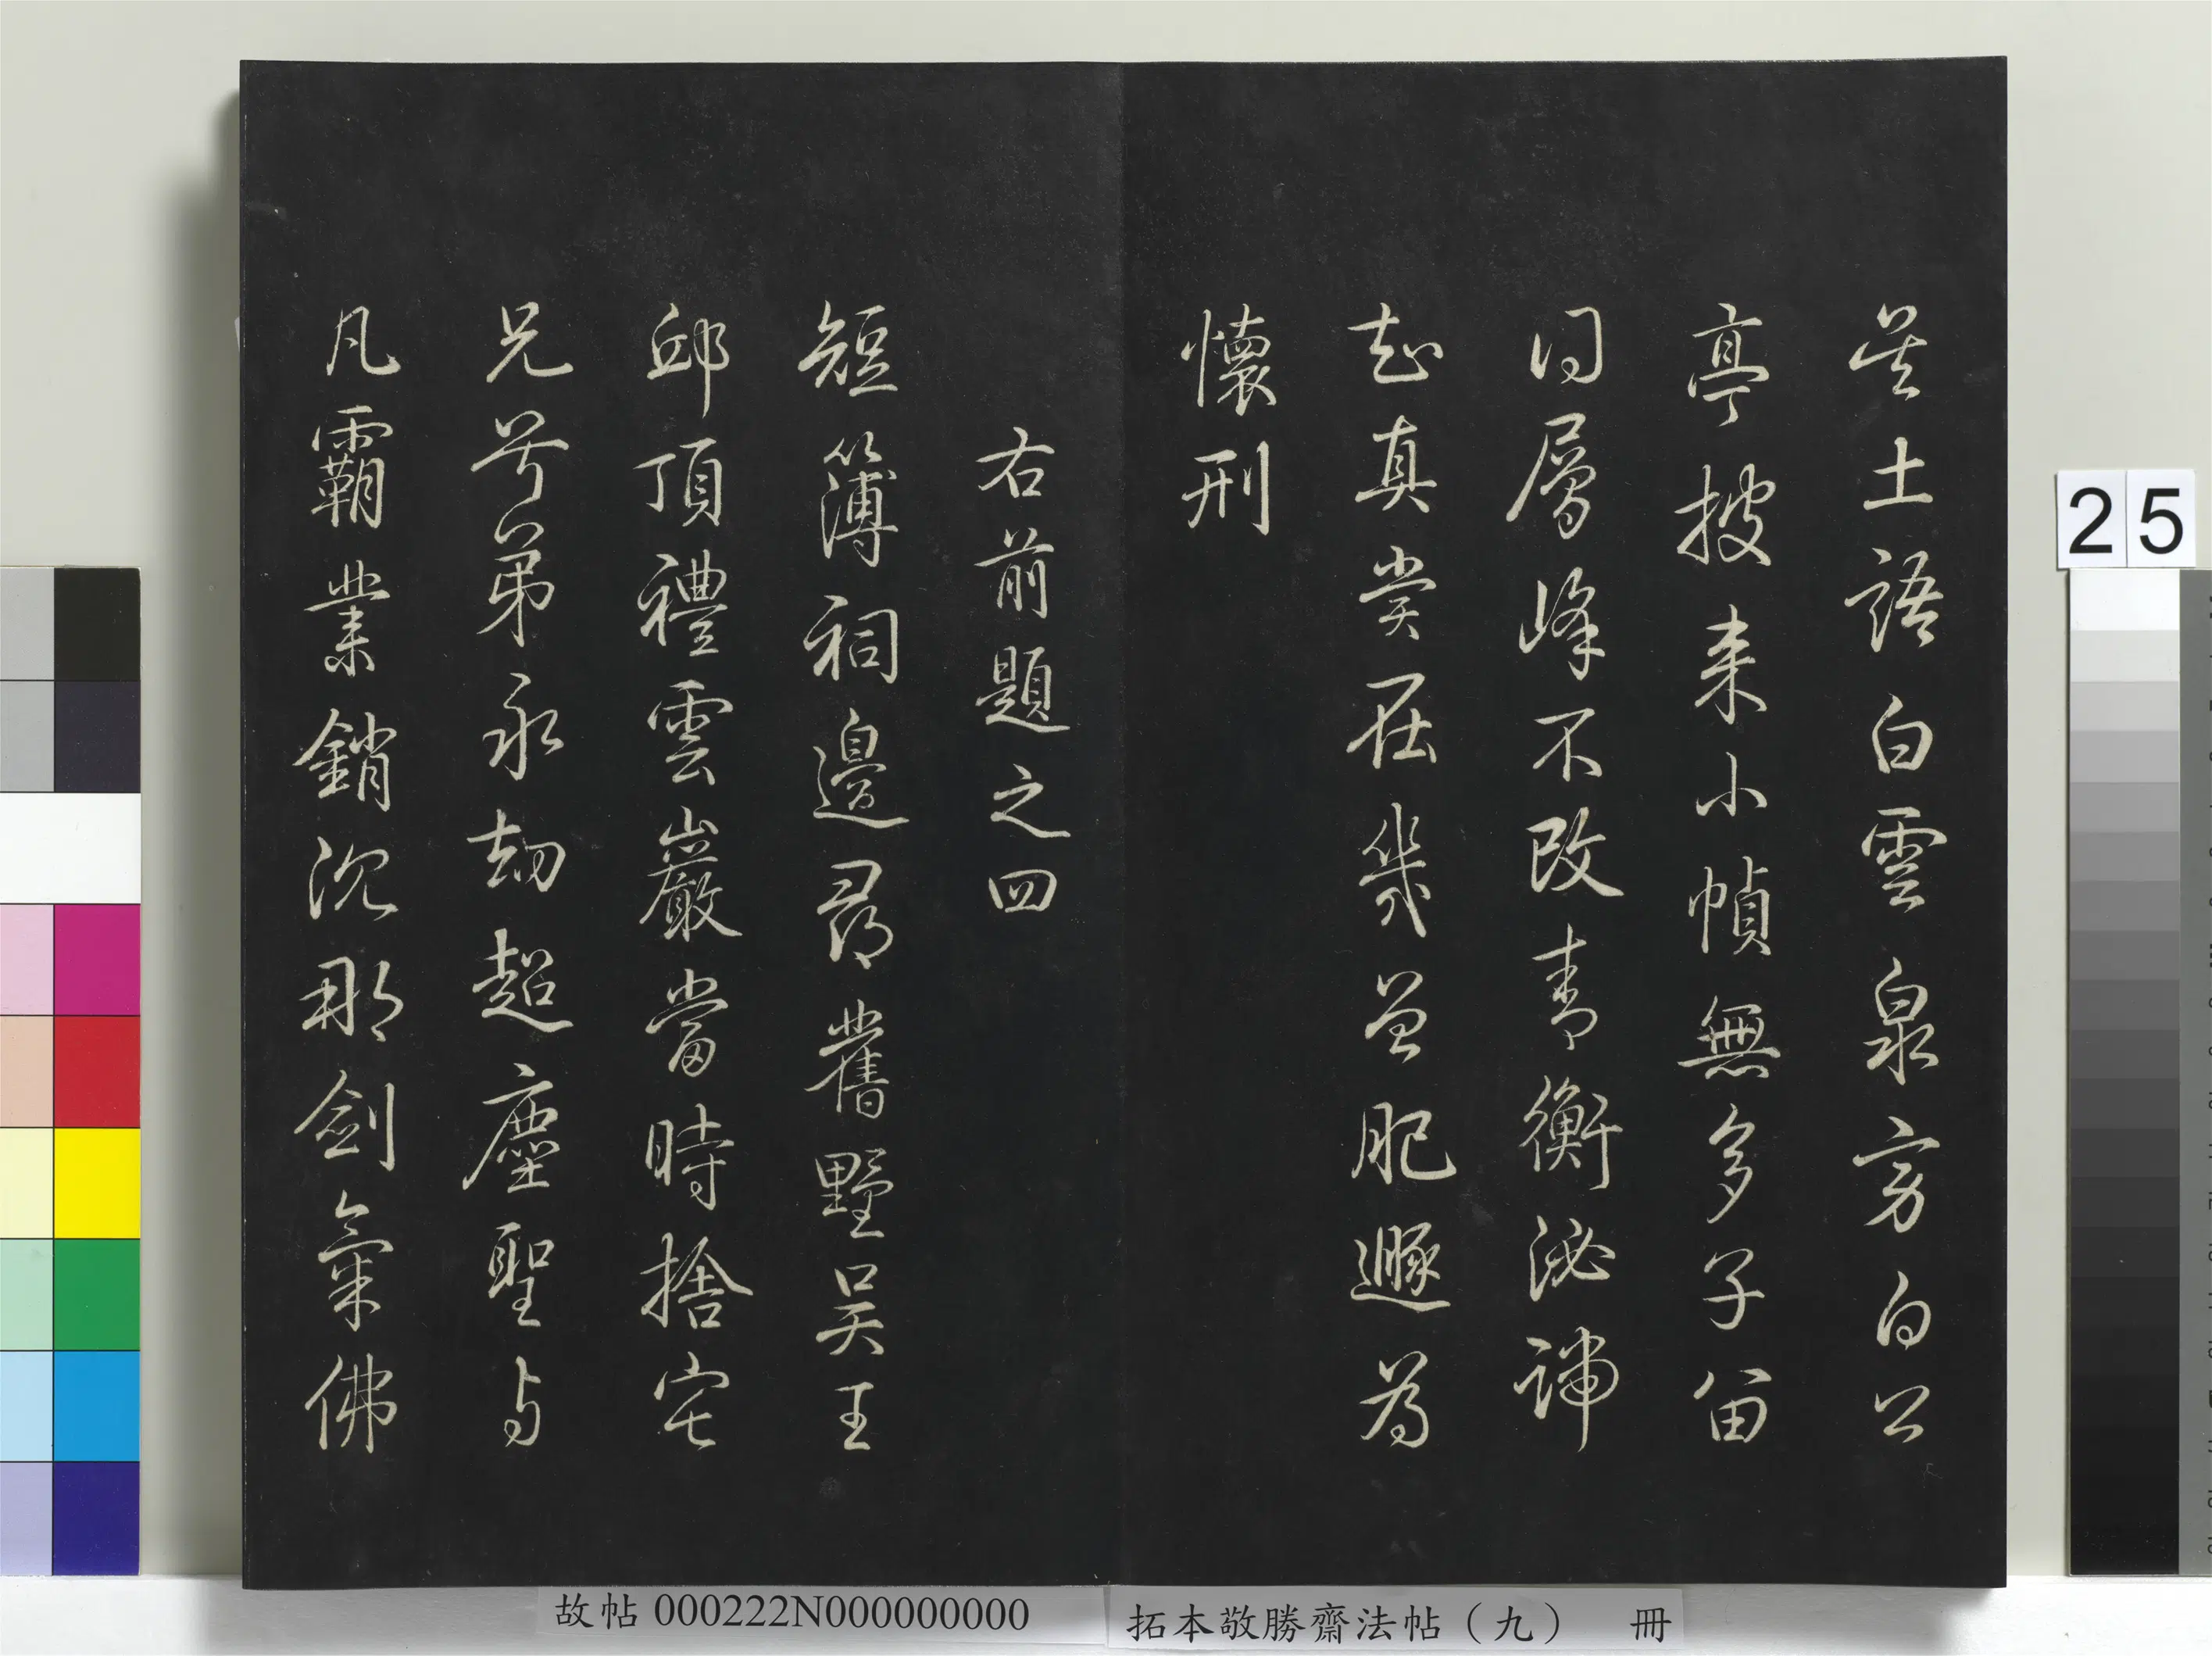 是土語白雲泉旁白公
亭披来小幀無多子留
同層峰不改青衡泌諦
知真賞在幾曾肥遯為
懷刑
右前題之四
短簿祠邊尋舊墅吳王
邱頂禮雲巖當時捨宅
兄兮弟永劫超塵聖与
凡霸業銷沉那劍氣佛
25
故帖 000222N000000000
拓本敬勝齋法帖（九） 冊